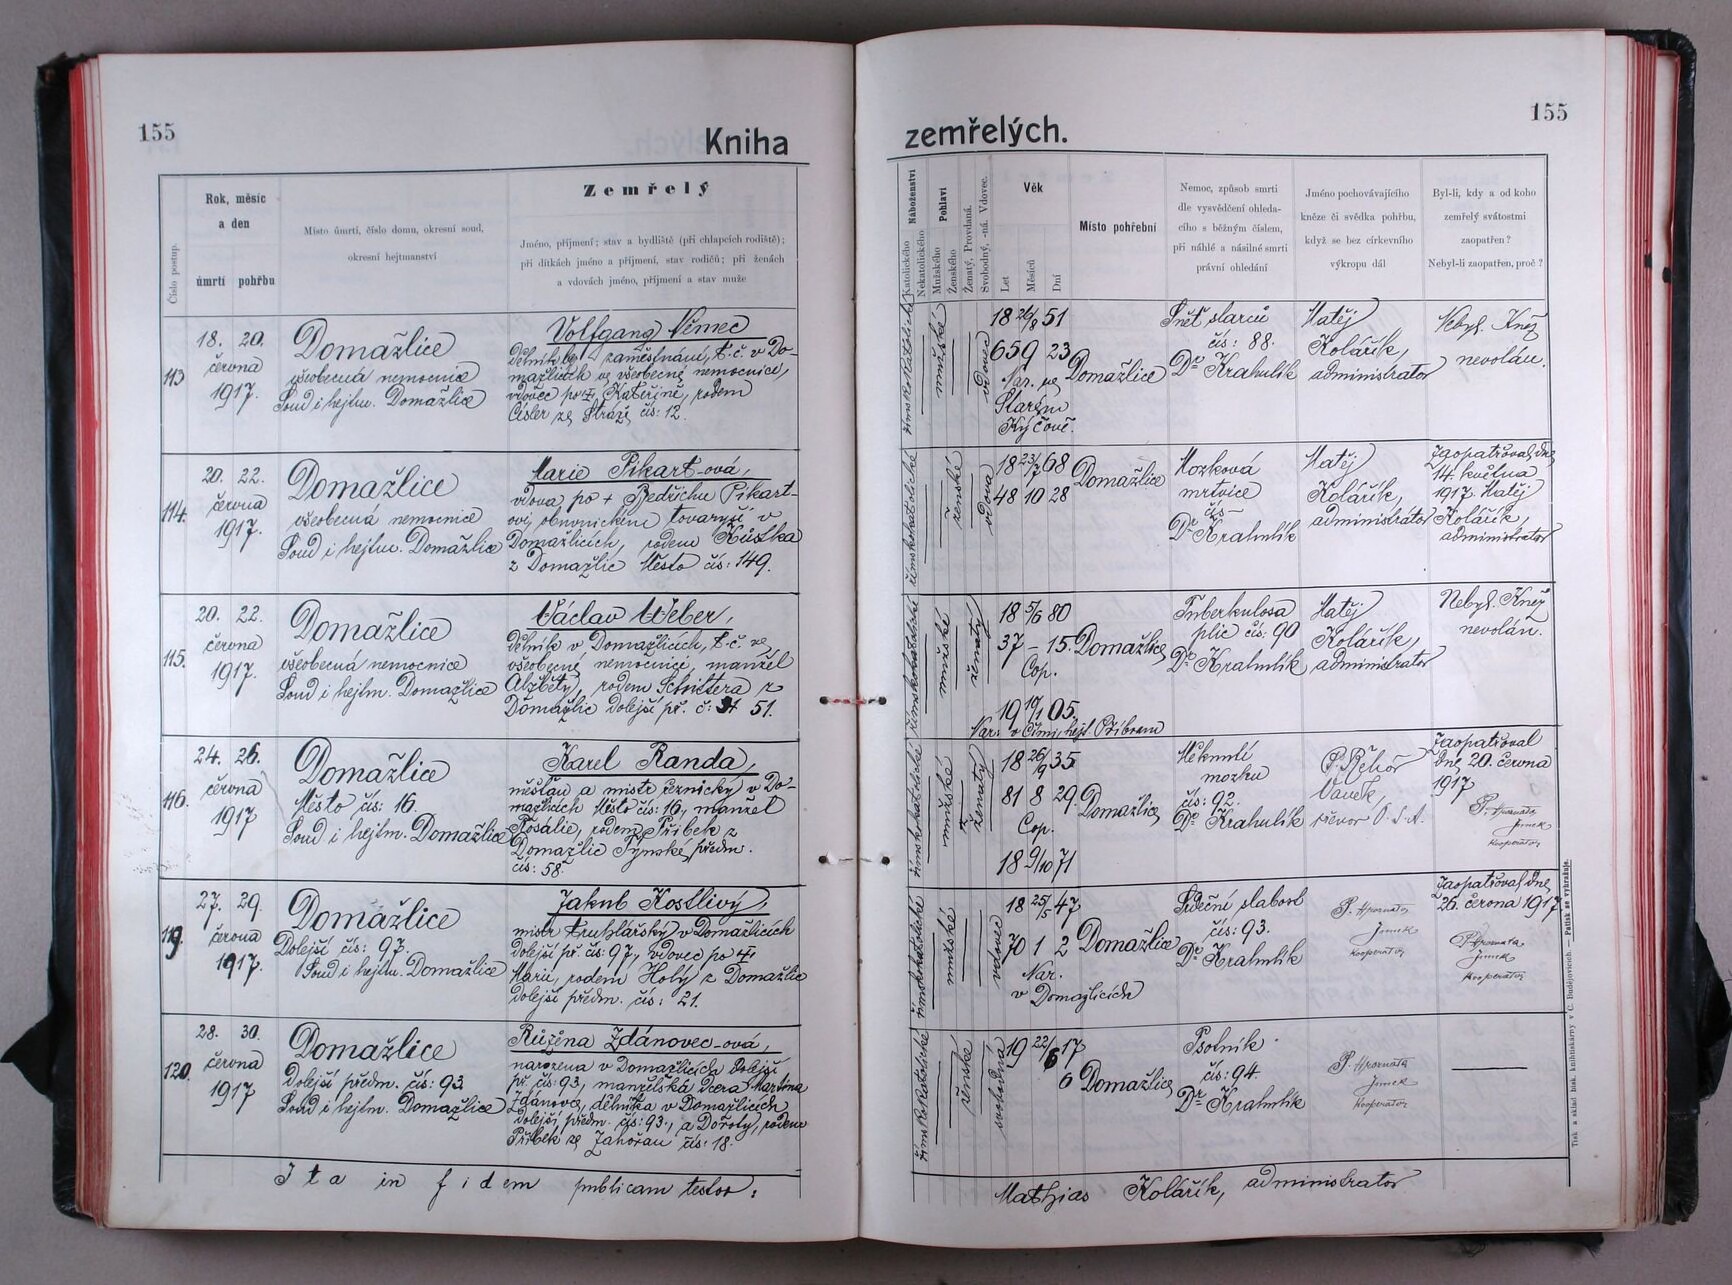 155
Kniha
Rok, měsíc
a den
úmrtí pohřbu
Číslo postup.
Místo úmrtí, číslo domu, okresní soud,
okresní hejtmanství
Zemřelý
Jméno, příjmení; stav a bydliště (při chlapcích rodiště);
při dítkách jméno a příjmení, stav rodičů; při ženách
a vdovách jméno, příjmení a stav muže
113
18. 20.
června
1917.
Domažlice
všeobecná nemocnice
Soud i hejtm. Domažlice
Volfgang Němec
zaměstnání, t.č. v Do-
mažlicích ve všeobecné nemocnici,
vdovec po † Kateřině, rodem
Cisler ze Stráže čís: 12.
114.
20. 22.
června
1917.
Domažlice
všeobecná nemocnice
Soud i hejtm. Domažlice
Marie Pikart-ová,
vdova po † Bedřichu Pikart-
ovi, obuvnickém tovaryši v
Domažlicích, rodem Kůstka
z Domažlic Město čís: 149.
115.
20. 22.
června
1917.
Domažlice
všeobecná nemocnice
Soud i hejtm. Domažlice
Václav Weber,
dělník v Domažlicích, t.č. ve
všeobecné nemocnice, manžel
Alžběty, rodem z
Domažlic dolejší př. č: 51.
116.
24. 26.
června
1917
Domažlice
Město čís: 16.
Soud i hejtm. Domažlice
Karel Randa,
měšťan a mistr řeznický v Do-
mažlicích Město čís: 16, manžel
Rosalie, rodem Přibek z
Domažlic Týnské předm.
čís: 58.
119.
27. 29.
června
1917.
Domažlice
Dolejší čís: 97.
Soud i hejtm. Domažlice
Jakub Kostlivý,
mistr truhlářský v Domažlicích
dolejší př. čís: 97, vdovec po †
Marii, rodem Holý z Domažlic
dolejší předm. čís: 21.
120.
28. 30.
června
1917
Domažlice
Dolejší předm. čís: 93
Soud i hejtm. Domažlice
Růžena Zdánovec-ová,
narozena v Domažlicích Dolejší
př. čís: 93, manželská dcera Martina
Zdánovce, dělníka v Domažlicích
dolejší předm. čís: 93., a Doroty, rodem
Přibek ze Zahořan čís: 18.
Ita in fidem publicam testor:
155
zemřelých.
Náboženství
Katolického
Nekatolického
Pohlaví
Mužského
Ženského
Ženatý, Provdaná.
Svobodný, -ná. Vdovec.
Věk
Let
Měsíců
Dní
Místo pohřební
Nemoc, způsob smrti
dle vysvědčení ohleda-
cího s běžným číslem,
při náhlé a násilné smrti
právní ohledání
Jméno pochovávajícího
kněze či svědka pohřbu,
když se bez církevního
výkropu dál
Byl-li, kdy a od koho
zemřelý svátostmi
zaopatřen?
Nebyl-li zaopatřen, proč?
římskokatolické
mužské
vdovec
18 26/8 51
65 9 23
Nar. ve
Starém
Kyčově.
Domažlice
Sněť starců
čís: 88.
Dr Krahulík
Matěj
Kolářík,
administrátor
Nebyl. Kněz
nevolán.
římskokatolické
ženské
vdova
18 23/7 68
48 10 28
Domažlice
Mozková
mrtvice
čís –
Dr Krahulík
Matěj
Kolářík,
administrátor
Zaopatřoval dne
14. května
1917. Matěj
Kolářík,
administrátor
římskokatolické
mužské
ženatý
18 5/6 80
37 – 15.
Cop.
19 19/1 05.
Domažlice
Tuberkulosa
plic čís: 90
Dr Krahulík
Matěj
Kolářík,
administrátor
Nebyl. Kněz
nevolán.
římskokatolické
mužské
ženatý
18 26/9 35
81 8 29.
Cop.
18 9/10 71
Domažlice
Měknutí
mozku
čís: 92.
Dr Krahulík
P. Řehoř
Vaněk,
O.S.A.
Zaopatřoval
dne 20. června
1917
P. Hroznata
Jimek
kooperátor
římskokatolické
mužské
vdovec
18 25/5 47
70 1 2
Nar.
v Domažlicích
Domažlice
Srdeční slabost
čís: 93.
Dr Krahulík
P. Hroznata
Jimek
kooperátor
Zaopatřoval dne
26. června 1917
P. Hroznata
Jimek
kooperátor
římskokatolické
ženské
svobodná
19 22/6 17
6
Domažlice
Psotník
čís: 94.
Dr Krahulík
P. Hroznata
Jimek
kooperátor
Mathias Kolářík, administrátor
Tisk a sklad bisk. knihtiskárny v Č. Budějovicích. — Patisk se vyhražuje.